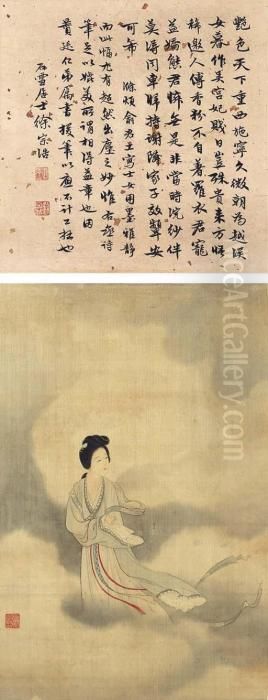 艷色天下重西施寧久微朝為越溪
女暮作吳宮妃賤日豈殊貴來方悟
稀邀人傅香粉不自著羅衣君寵
益嬌態君憐無是非當時浣紗伴
莫得同車歸持謝隣家子效顰安
可希 滌煩俞君工寫士女用墨雅靜
而此幅尤有超然出塵之妙惟右丞詩
筆足以媲美所謂相得益章也因
貴廷仁弟屬書援筆以應不計工拙也
石雪居士徐宗浩